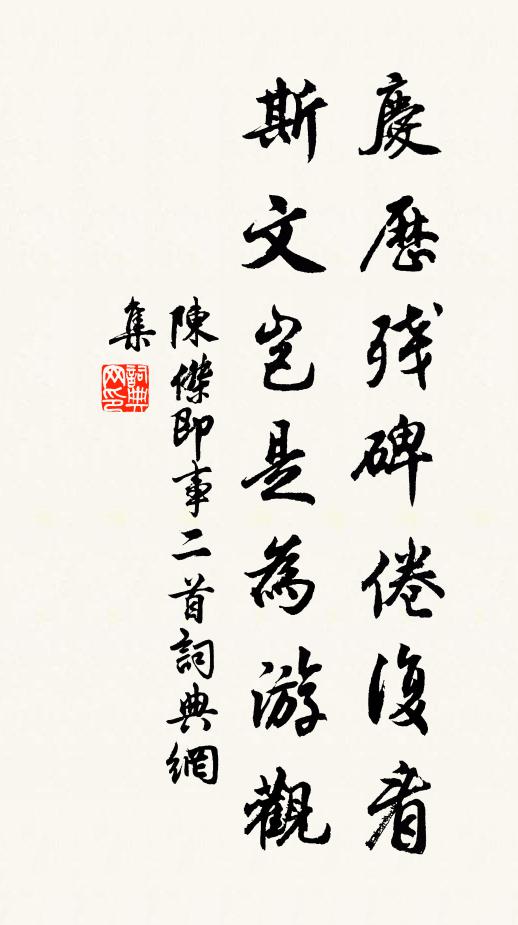 慶歷殘碑倦復看
斯文豈是為游觀
陳傑即事二首詞典網
集
詞典網印